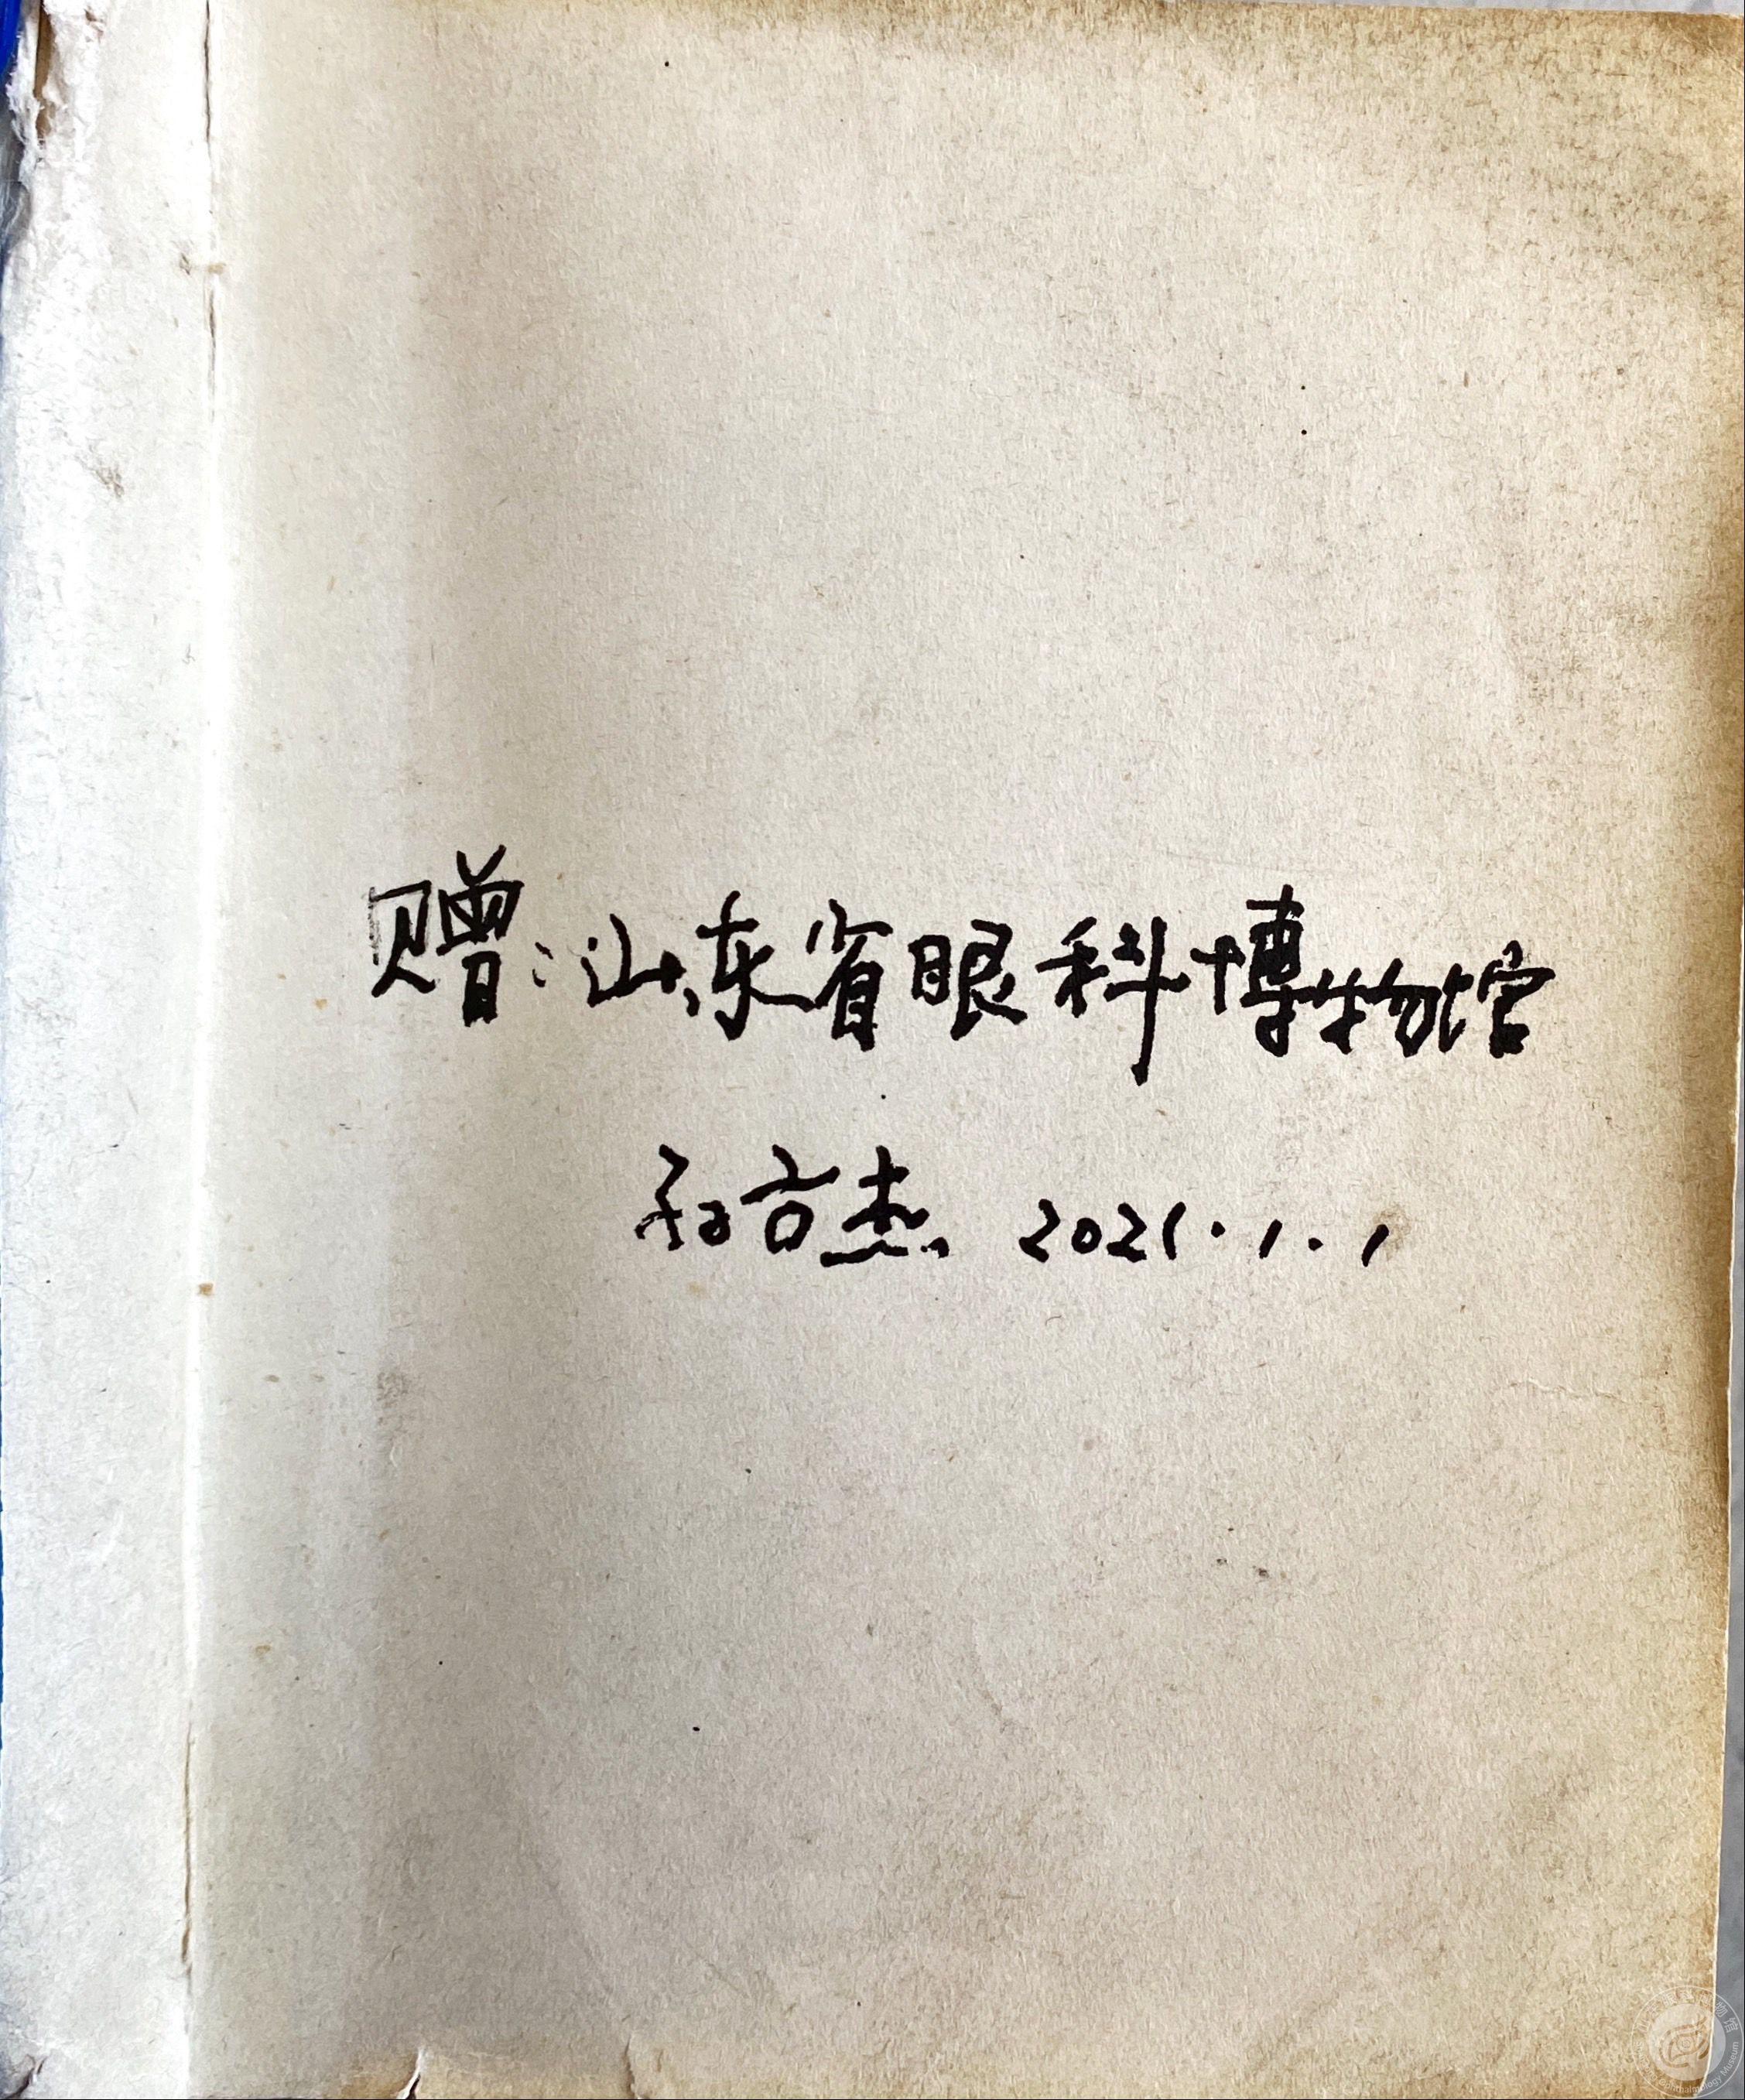 赠:山东省眼科博物馆
方杰 2021.1.1